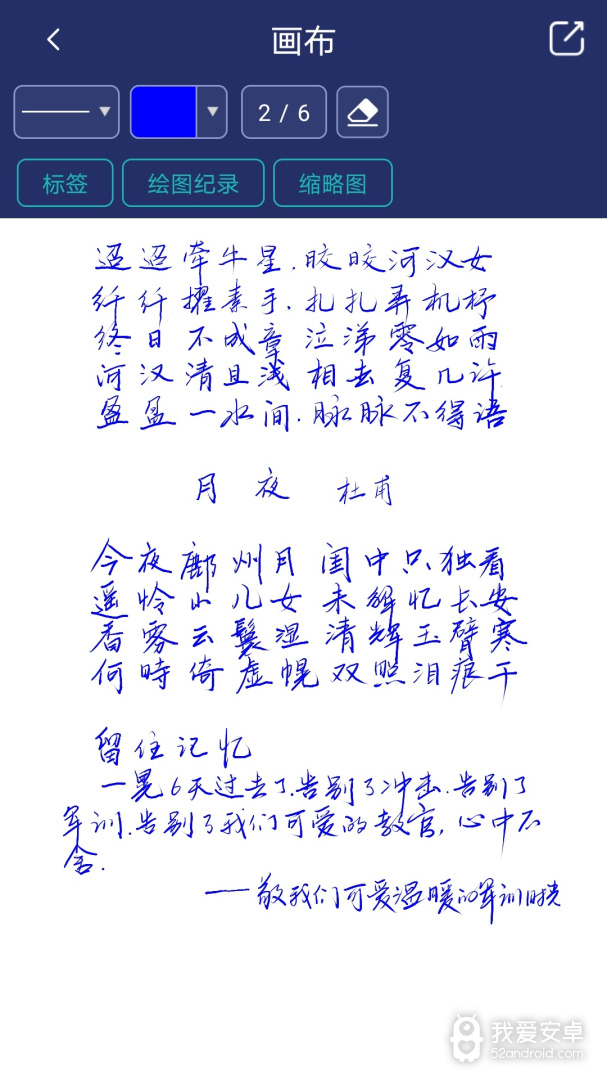 画布
2 / 6
标签 绘图纪录 缩略图
迢迢牵牛星.皎皎河汉女
纤纤擢素手.扎扎弄机杼
终日不成章 泣涕零如雨
河汉清且浅 相去复几许
盈盈一水间.脉脉不得语
月夜 杜甫
今夜鄜州月 闺中只独看
遥怜小儿女 未解忆长安
香雾云鬓湿 清辉玉臂寒
何時倚虚幌 双照泪痕干
留住记忆
一晃6天过去了.告别了冲击.告别了
军训.告别了我们可爱的教官,心中不
舍.
——敬我们可爱温暖的军训时光
我爱安卓
52android.com